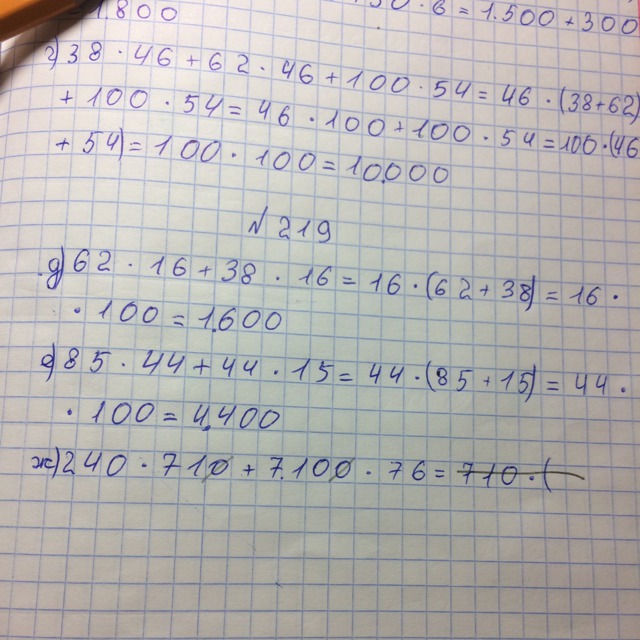 1.800
· 6 = 1.500 + 300
г) 38 · 46 + 62 · 46 + 100 · 54 = 46 · (38+62)
+ 100 · 54 = 46 · 100 + 100 · 54 = 100 · (46
+ 54) = 100 · 100 = 10.000
№ 219
д) 62 · 16 + 38 · 16 = 16 · (62 + 38) = 16 ·
· 100 = 1.600
е) 85 · 44 + 44 · 15 = 44 · (85 + 15) = 44 ·
· 100 = 4.400
ж) 240 · 710 + 7.100 · 76 = 710 · (